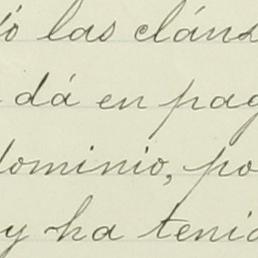 ó las cláus
dá en pag
dominio, po
y ha tenid